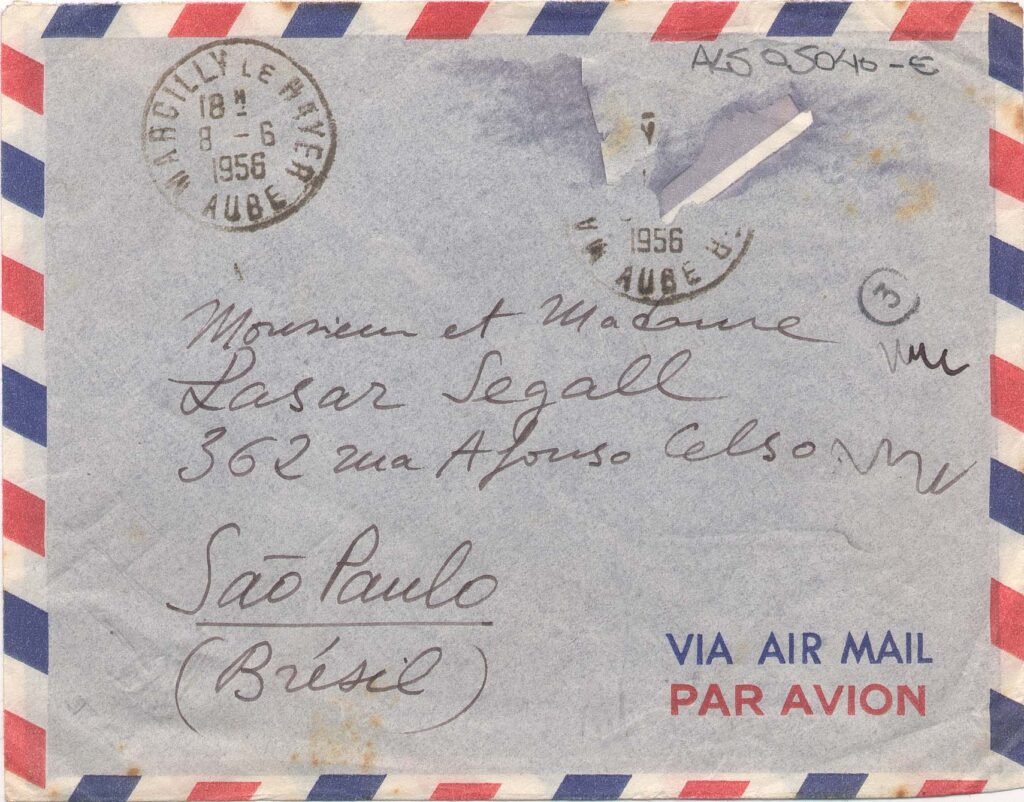 ALS 05040-E
MARCILLY LE HAYER
18H
8 - 6
1956
AUBE
1956
AUBE
3
Monsieur et Madame
Lasar Segall
362 rua Afonso Celso
São Paulo
(Brésil)
VIA AIR MAIL
PAR AVION